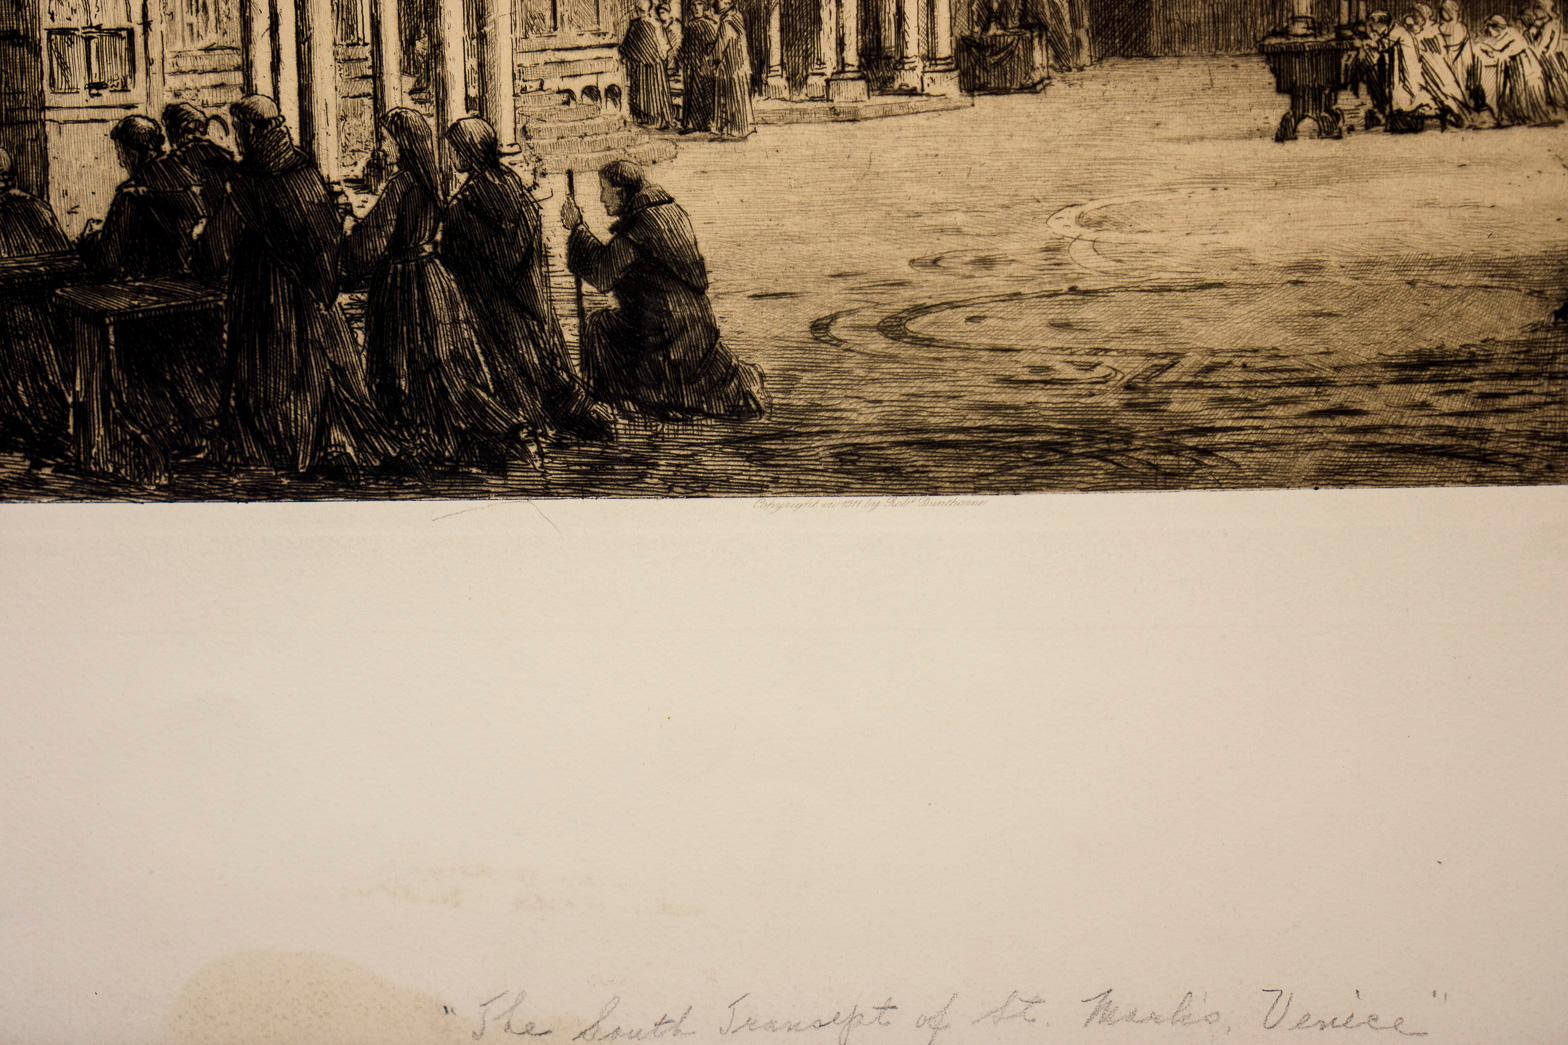 Copyright 1911 by Robt Dunthorne
"The South Transept of St. Mark's, Venice"